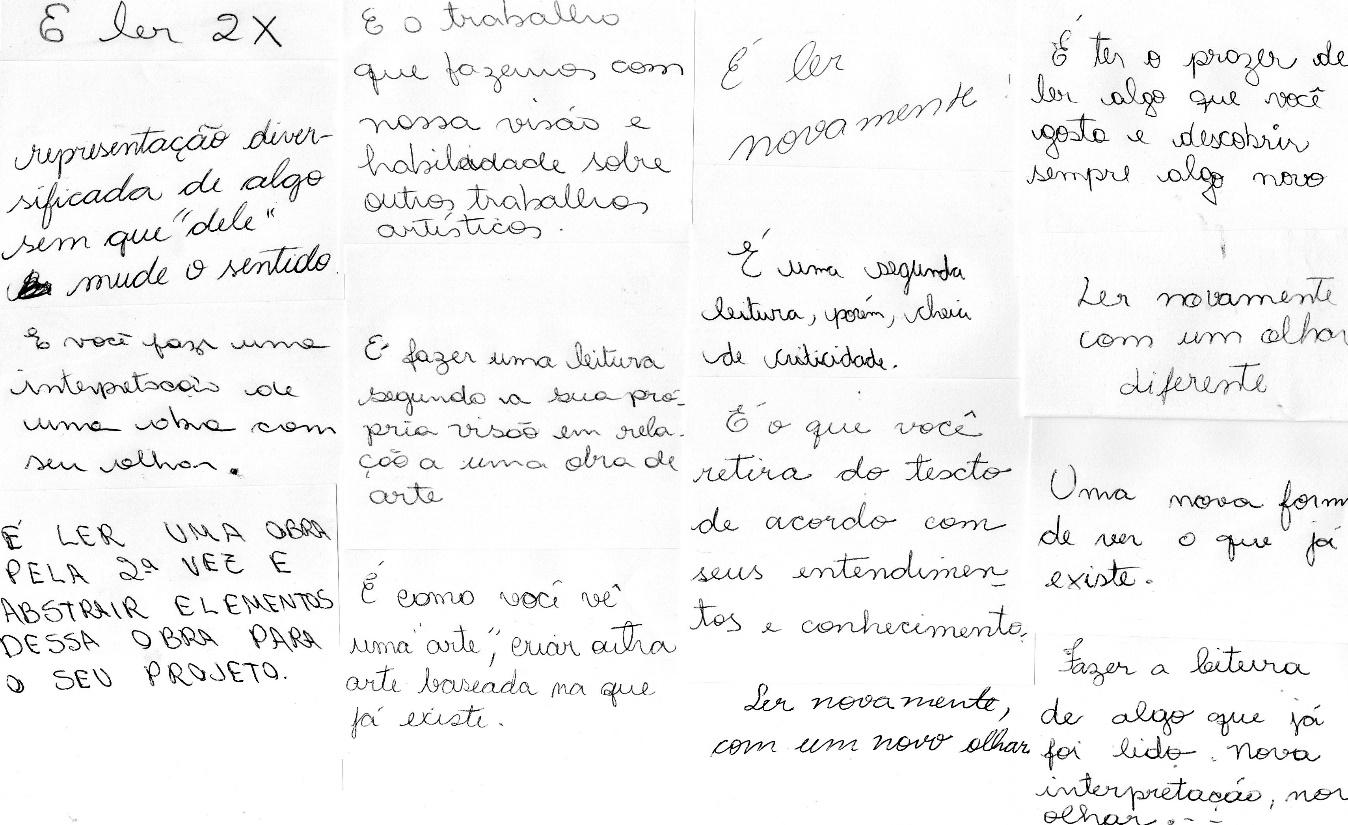 E ler 2X
representação diver-
sificada de algo
sem que "dele"
mude o sentido.
E você faze uma
interpretação de
uma obra com
seu olhar.
É LER UMA OBRA
PELA 2ª VEZ E
ABSTRAIR ELEMENTOS
DESSA OBRA PARA
O SEU PROJETO.
E o trabalho
que fazemos com
nossa visão e
habilidade sobre
outros trabalhos
artísticos.
E fazer uma leitura
segundo a sua pró-
pria visão em rela-
ção a uma obra de
arte
É como você vê
uma "arte", criar outra
arte baseada na que
já existe.
É ler
novamente!
É uma segunda
leitura, porém, cheia
de criticidade.
É o que você
retira do tescto
de acordo com
seus entendimen-
tos e conhecimento.
Ler novamente,
com um novo olhar
É ter o prazer de
ler algo que você
gosta e descobrir
sempre algo novo
Ler novamente
com um olhar
diferente
Uma nova form
de ver o que já
existe.
Fazer a leitura
de algo que já
foi lido. Nova
interpretação, nov
olhar...